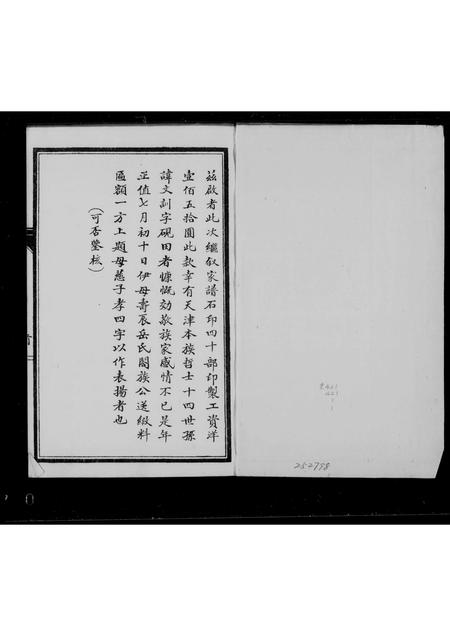 茲啟者此次繼敘家譜石印四十部印製工資洋
壹佰五拾圓此款幸有天津本族哲士十四世孫
諱文訓字硯田者慷慨効敬族家感情不已是年
正值七月初十日伊母壽辰岳氏闔族公送緞料
匾額一方上題母慈子孝四字以作表揚者也
(可否鑒核)
252798